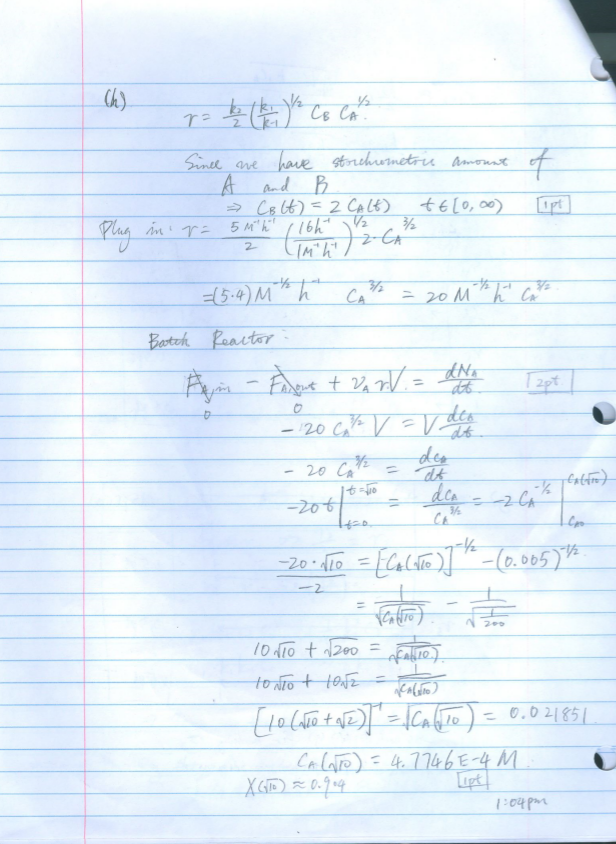 (h) r = k₂/2 (k₁/k₋₁)^1/2 C_B C_A^1/2.
Since we have stoichiometric amount of
A and B
⇒ C_B(t) = 2 C_A(t) t ∈ [0, ∞) [1pt]
Plug in: r = 5 M⁻¹h⁻¹/2 (16h⁻¹/1M⁻¹h⁻¹)^1/2 2·C_A^3/2
= (5·4) M^-1/2 h⁻¹ C_A^3/2 = 20 M^-1/2 h⁻¹ C_A^3/2
Batch Reactor:
F_A,in - F_A,out + ν_A r V = dN_A/dt [2pt]
0 0
- 20 C_A^3/2 V = V dC_A/dt
- 20 C_A^3/2 = dC_A/dt
-20t |t=0 t=√10 = dC_A/C_A^3/2 = -2 C_A^-1/2 |C_A0 C_A(√10)
-20·√10/-2 = [C_A(√10)]^-1/2 - (0.005)^-1/2
= 1/√C_A(√10) - 1/√(1/200)
10√10 + √200 = 1/√C_A(√10)
10√10 + 10√2 = 1/√C_A(√10)
[10(√10+√2)]⁻¹ = √C_A(√10) = 0.021851
C_A(√10) = 4.7746E-4 M
X(√10) ≈ 0.904 [1pt]
1:04pm